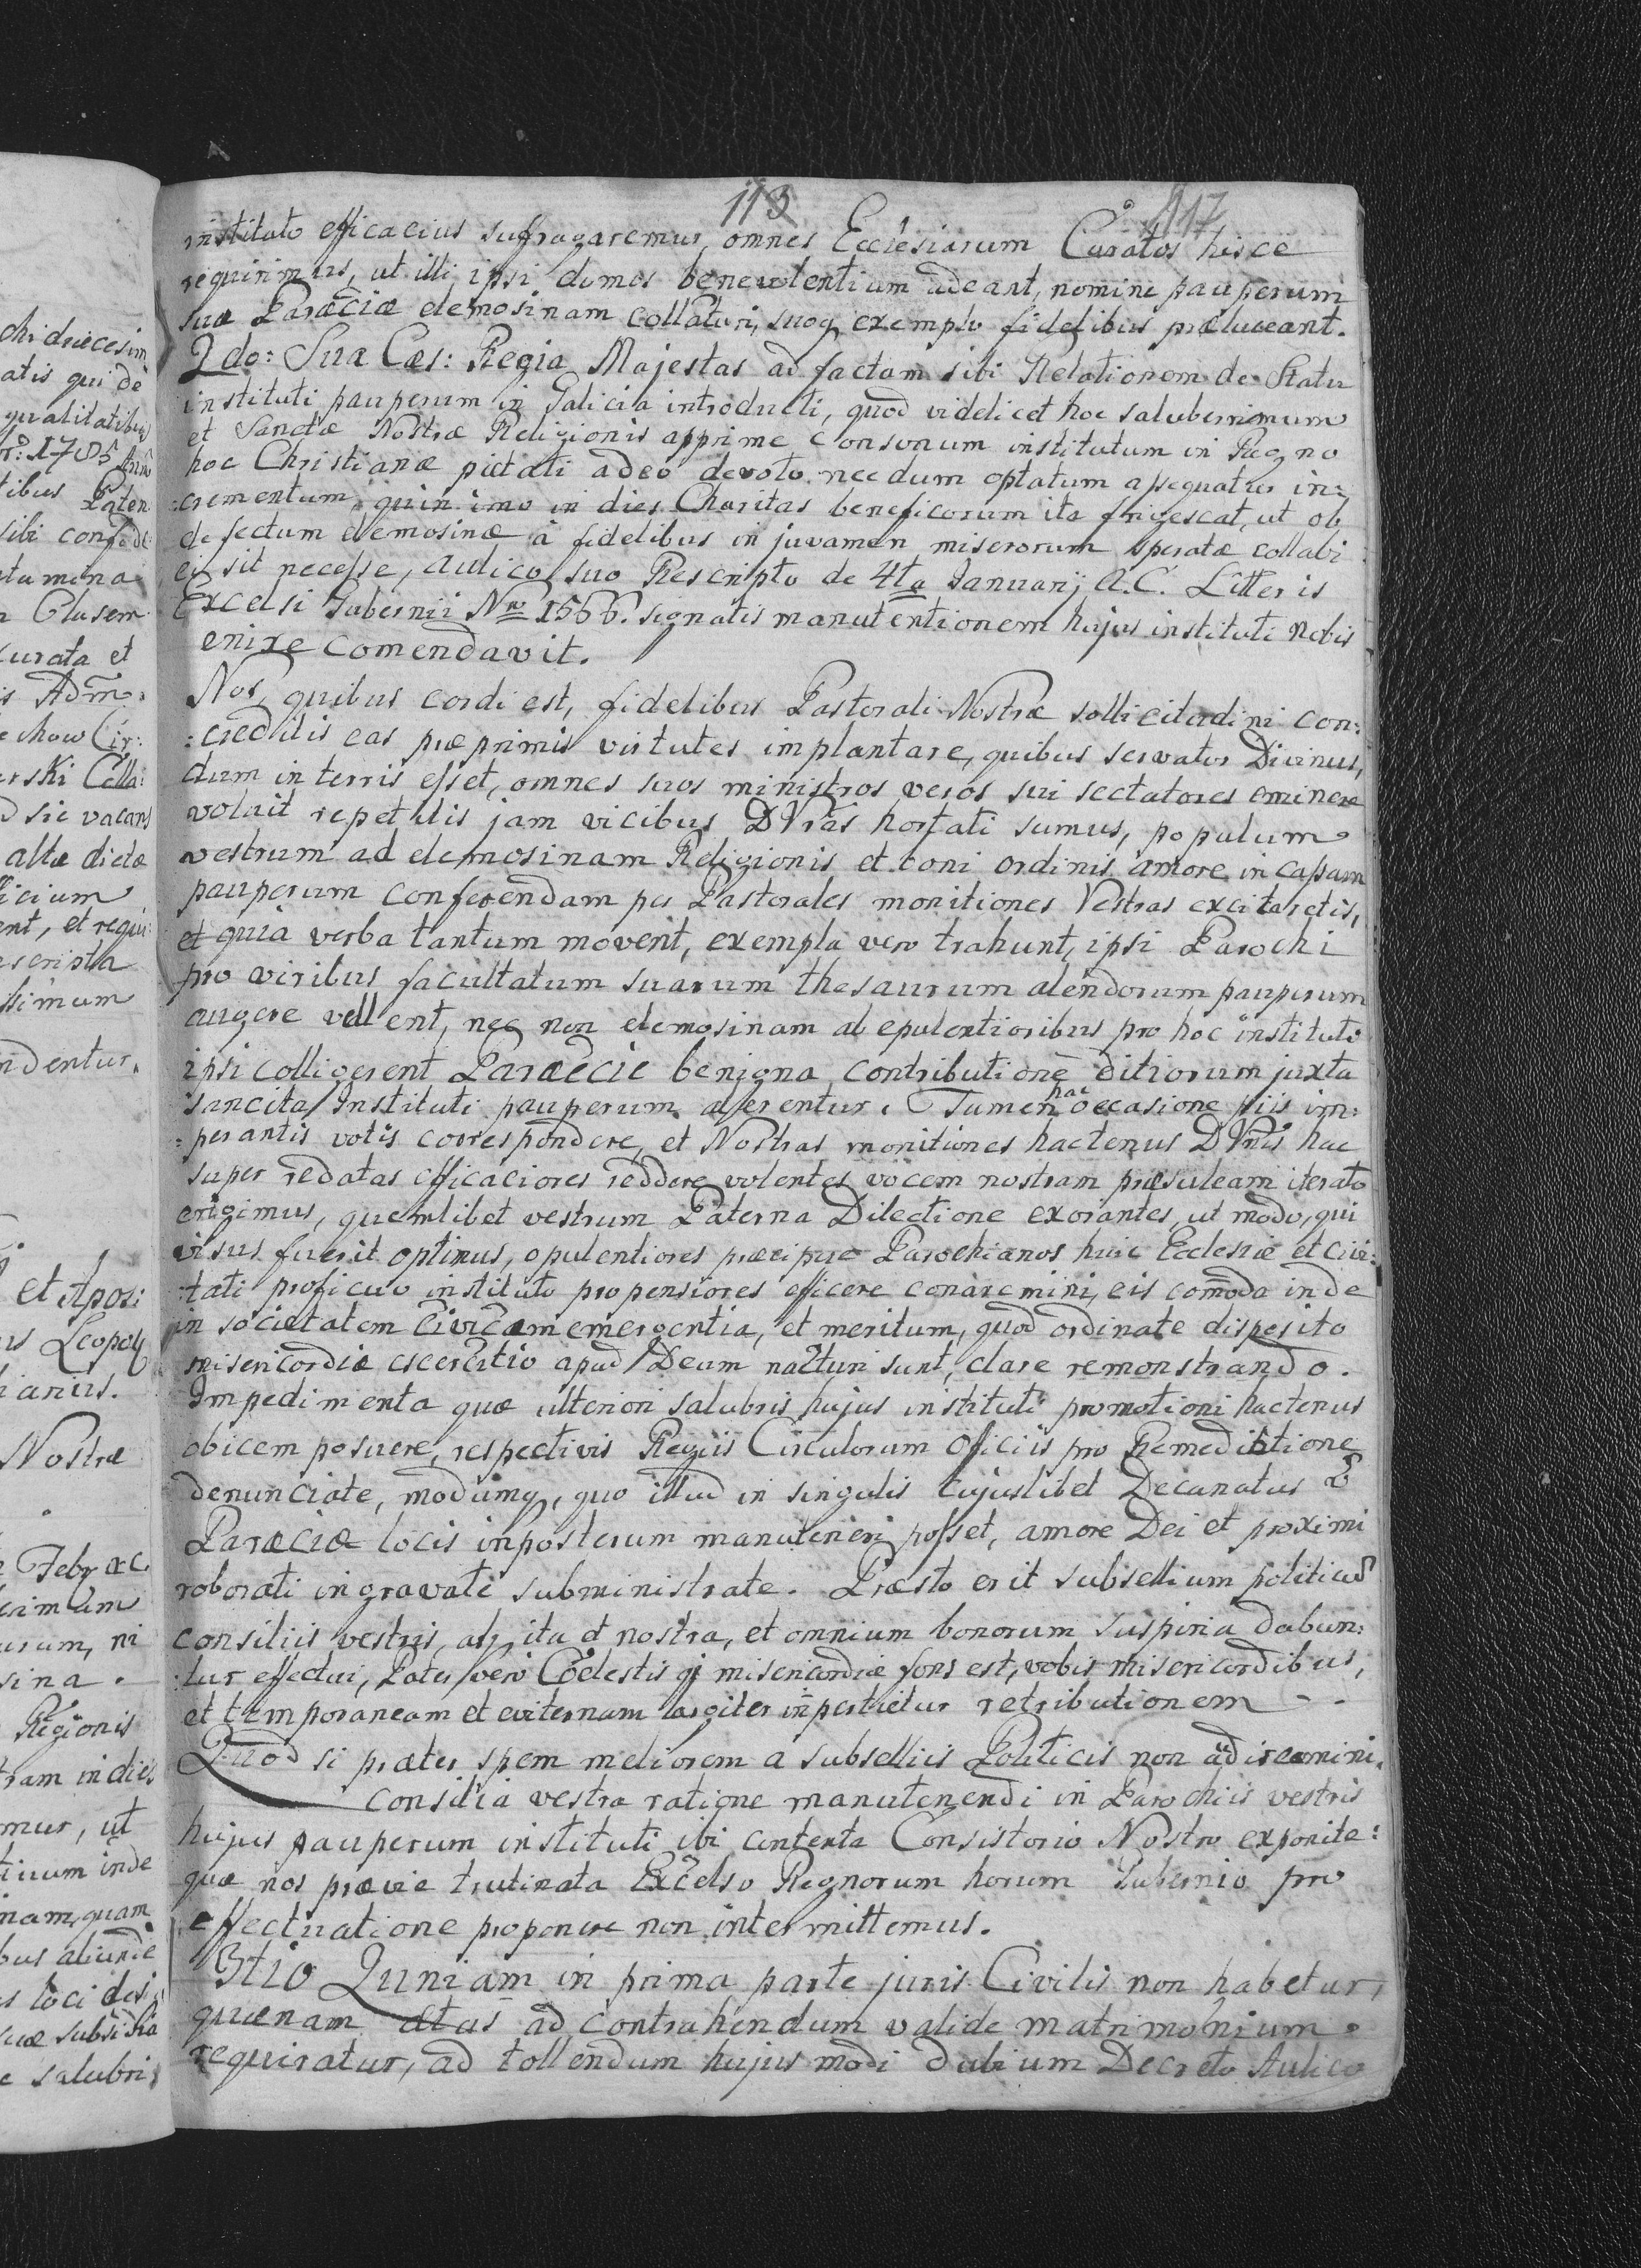 113
117
instituto efficacius suffragaremur, omnes Ecclesiarum Curatos hisce
requirimus, ut illi ipsi domos benevolentium adeant, nomine pauperum
suæ Paræciæ elemosinam collaturi, suoq exemplo fidelibus præluceant.
2do: Sua Cæs: Regia Majestas ad factam sibi Relationem de Statu
instituti pauperum in Galicia introducti, quod videlicet hoc saluberrimum
et Sanctæ Nostræ Religionis apprime consonum institutum in Regno
hoc Christianæ pietati adeo devoto necdum optatum assequatur in:
:crementum, quin imo in dies Charitas beneficorum ita frigescat, ut ob
defectum elemosinæ à fidelibus in juvamen miserorum speratæ collabi
ei sit necesse, Aulico suo Rescripto de 4ta Januarij A.C. Litteris
Excelsi Gubernii Nro 1566. signatis manutentionem hujus instituti Nobis
enixe comendavit.
Nos, quibus cordi est, fidelibus Pastorali Nostræ sollicitudini con:
:creditis eas præprimis virtutes implantare, quibus servator Divinus,
dum in terris esset, omnes suos ministros veros sui sectatores eminere
voluit repetitis jam vicibus DVras hortati sumus, populum
vestrum ad elemosinam Religionis et boni ordinis amore in cassam
pauperum conferendam per Pastorales monitiones Vestras excitaretis,
et quia verba tantum movent, exempla vero trahunt, ipsi Parochi
pro viribus facultatum suarum thesaurum alendorum pauperum
augere vellent, nec non elemosinam ab opulentioribus pro hoc instituto
ipsi colligerent Paræciæ benigna contributione ditiorum juxta
sancita Instituti pauperum alerentur. Tamen hac occasione piis im:
:perantis votis correspondere, et Nostras monitiones hactenus DVris hac
super redatas efficaciores reddere volentes vocem nostram præsuleam iterato
erigimus, quemlibet vestrum Paterna Dilectione exorantes, ut modo, qui
visus fuerit optimus, opulentiores præcipue Parochianos huic Ecclesiæ et civi:
:tati proficuo instituto propensiores efficere conaremini, eis comoda inde
in societatem Civicam emergentia, et meritum, quod ordinate disposito
misericordiæ exercitio apud Deum nacturi sunt, clare remonstrando.
Impedimenta quæ ulteriori salubris hujus instituti promotioni hactenus
obicem posuere, respectivis Regiis Circulorum Officiis pro Remediatione
denunciate, modumq, quo illud in singulis cujuslibet Decanatus
Paræciæ locis inposterum manuteneri posset, amore Dei et proximi
roborati ingravate subministrate. Præsto erit subsellium politicu
consiliis vestris, atq ita et nostra, et omnium bonorum suspiria dabun:
:tur effectui, Pater vero Cœlestis qi misericordiæ fons est, vobis misericordibus,
et temporaneam et eviternam largiter inpertietur retributionem - -
Quod si præter spem meliorem a subselliis Politicis non adiremini.
consilia vestra ratione manutenendi in Parochiis vestris
hujus pauperum instituti ibi contenta Consistorio Nostro exponite:
quæ nos prævie trutinata Excelso Regnorum horum Gubernio pro
effectuatione proponere non intermittemus.
3tio Quniam in prima parte juris Civilis non habetur,
quænam ætas ad contrahendum valide matrimonium
requiratur, ad tollendum hujus modi dubium Decreto Aulico